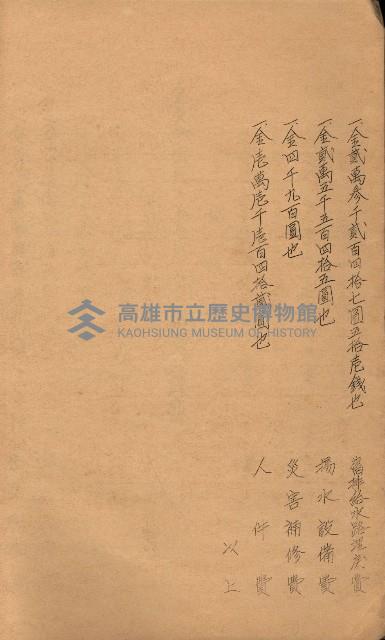 一、金貳萬參千貳百四拾七圓五拾壱錢也
給水路浚渫費
一、金貳萬五千五百四拾五圓也
揚水設備費
一、金四千九百圓也
災害補修費
一、金壱萬壱千壱百四拾貳圓也
人件費
以上
高雄市立歷史博物館
KAOHSIUNG MUSEUM OF HISTORY